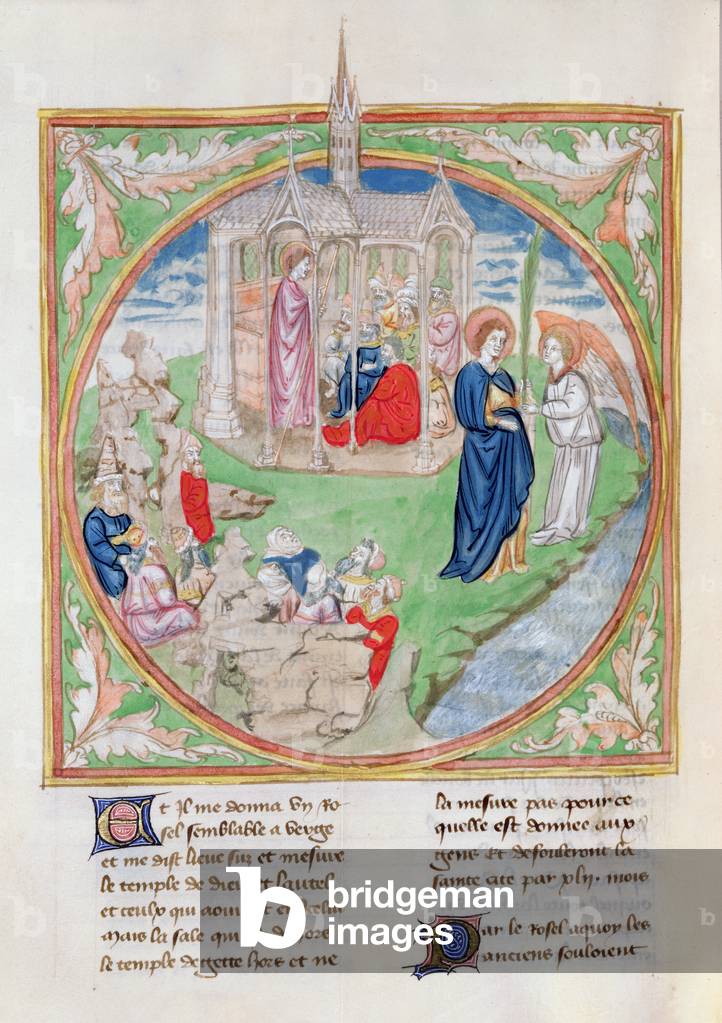 Et il me donna vng ro
sel semblable a verge
et me dist lieue sur et mesure
le temple de dieu et lautel
et ceulx qui
mais la sale qui
le temple degette hors et ne
la mesure pas pour ce
quelle est donnee aux
gens Et defouleront la
sainte cite par xlij. mois
Par le rosel aquoy les
anciens souloient
bridgeman
images